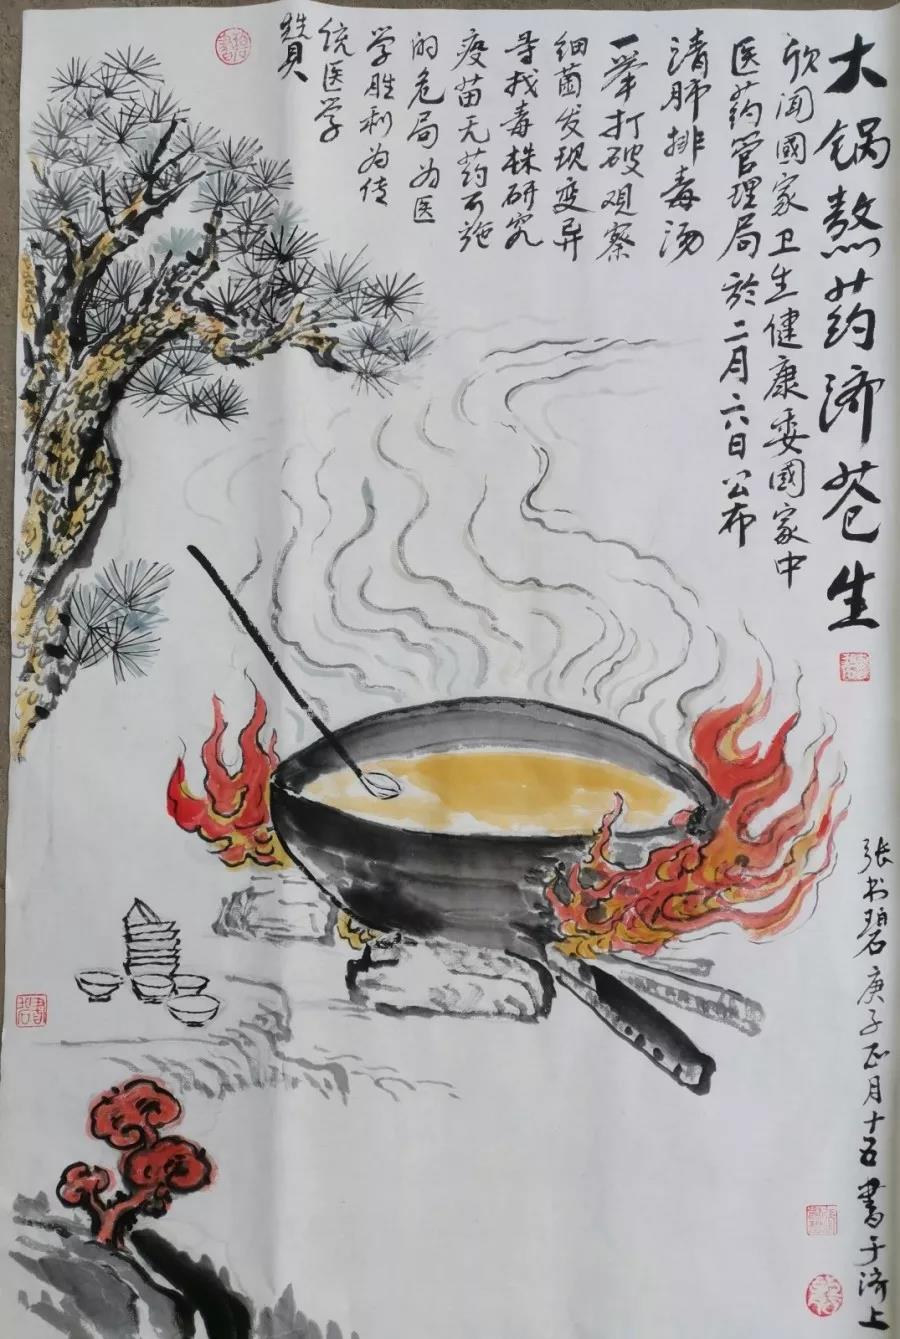 大锅熬药济苍生
欣闻國家卫生健康委國家中
医药管理局於二月六日公布
清肺排毒汤
一举打破观察
细菌发现变异
寻找毒株研究
疫苗无药可施
的危局为医
学胜利为传
统医学
贊
张书碧庚子正月十五書于济上